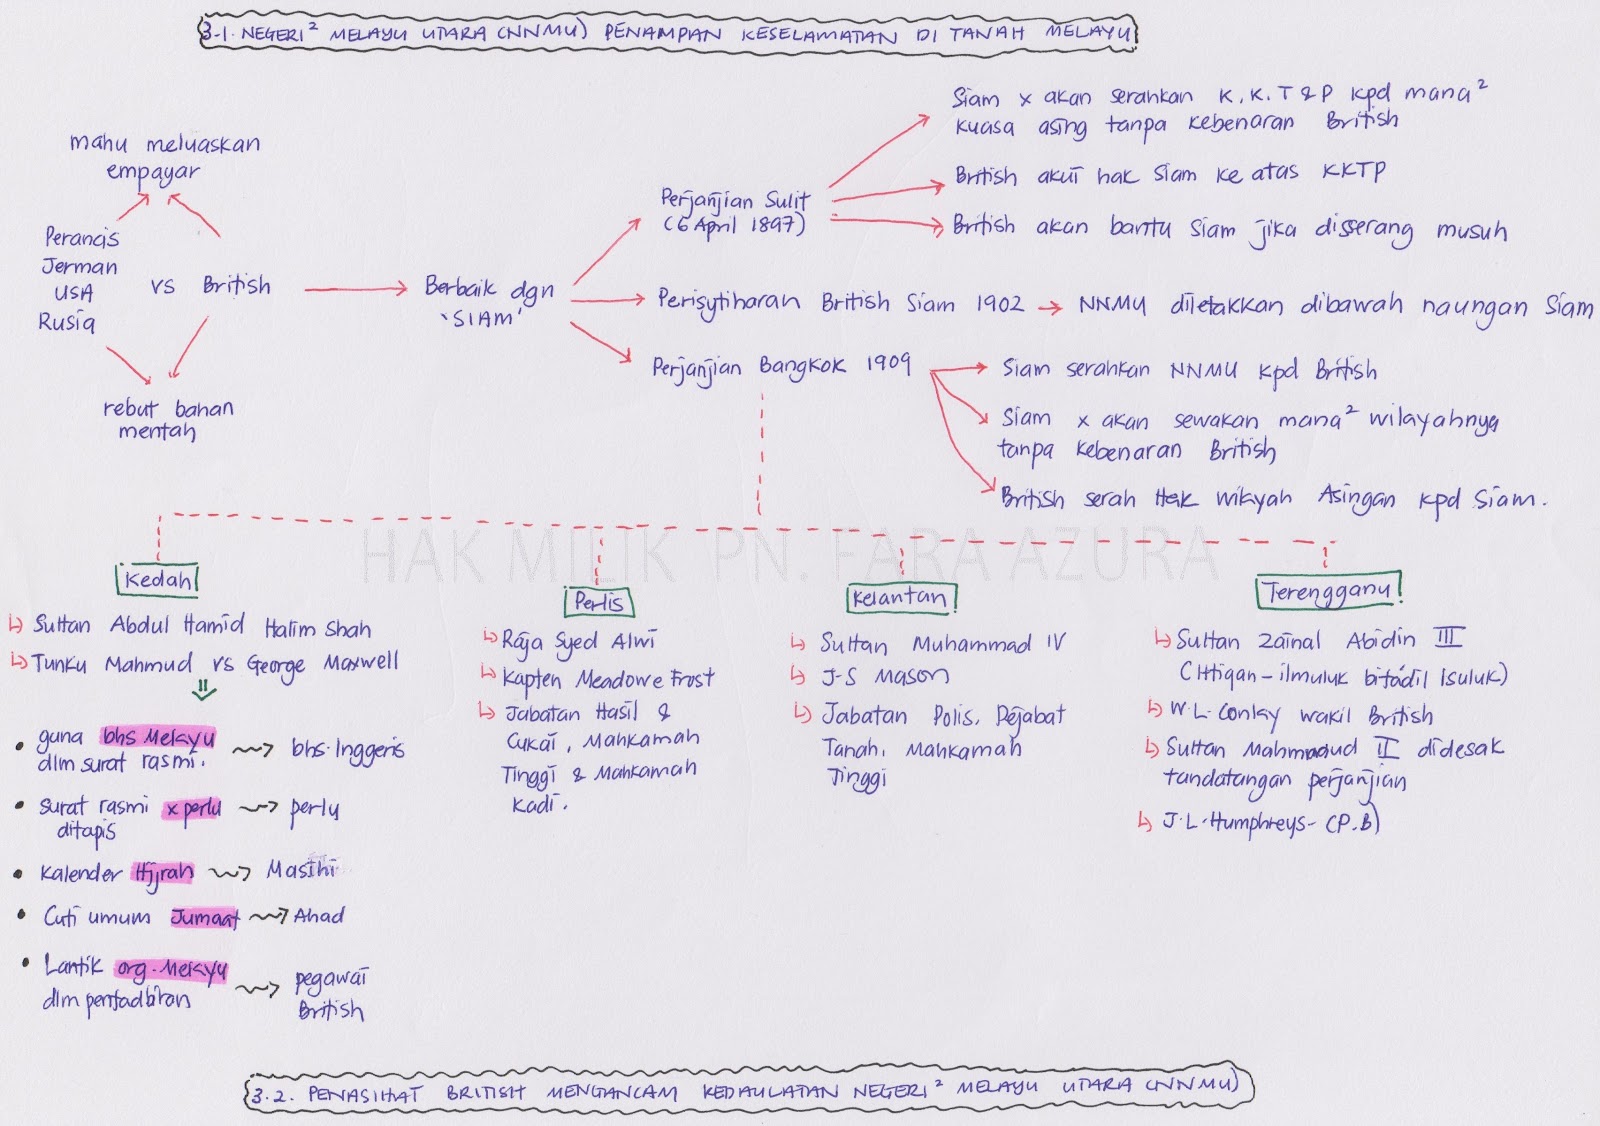 3.1. NEGERI² MELAYU UTARA (NNMU) PENAMPAN KESELAMATAN DI TANAH MELAYU
mahu meluaskan
empayar
Perancis
Jerman
USA
Rusia
vs British
rebut bahan
mentah
Berbaik dgn
'SIAM'
Perjanjian Sulit
(6 April 1897)
Siam x akan serahkan K.K.T & P kpd mana²
kuasa asing tanpa kebenaran British
British akui hak Siam ke atas KKTP
British akan bantu Siam jika disserang musuh
Perisytiharan British Siam 1902 → NNMU diletakkan dibawah naungan Siam
Perjanjian Bangkok 1909
Siam serahkan NNMU kpd British
Siam x akan sewakan mana² wilayahnya
tanpa kebenaran British
British serah Hak wilayah Asingan kpd Siam.
HAK MILIK PN. FARA AZURA
Kedah
Sultan Abdul Hamid Halim Shah
Tunku Mahmud vs George Maxwell
• guna bhs Melayu
dlm surat rasmi.
bhs. Inggeris
• surat rasmi x perlu
ditapis
perlu
• Kalender Hijrah
Masihi
• Cuti umum Jumaat
Ahad
• Lantik org. Melayu
dlm pentadbiran
pegawai
British
Perlis
Raja Syed Alwi
Kapten Meadowe Frost
Jabatan Hasil &
Cukai, Mahkamah
Tinggi & Mahkamah
Kadi.
Kelantan
Sultan Muhammad IV
J-S Mason
Jabatan Polis, Pejabat
Tanah, Mahkamah
Tinggi
Terengganu
Sultan Zainal Abidin III
(Ittiqan-ilmuluk bitádil Isuluk)
W.L. Conlay wakil British
Sultan Mahmud II didesak
tandatangan perjanjian
J.L. Humphreys - (P.B)
3.2. PENASIHAT BRITISH MENGANCAM KEDAULATAN NEGERI² MELAYU UTARA (NNMU)